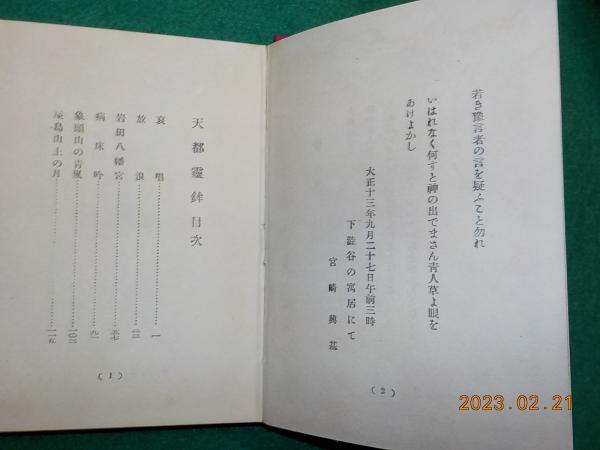 若き豫言者の言を疑ふこと勿れ
いはれなく何すと神の出でまさん靑人草よ眼を
あけよかし
大正十三年九月二十七日午前三時
下澁谷の寓居にて
宮崎興基
(2)
天都靈鉾目次
哀唱……一
放浪……
岩田八幡宮……
病床吟……九一
象頭山の靑嵐……一〇三
屋島山上の月……一一五
(1)
2023.02.21